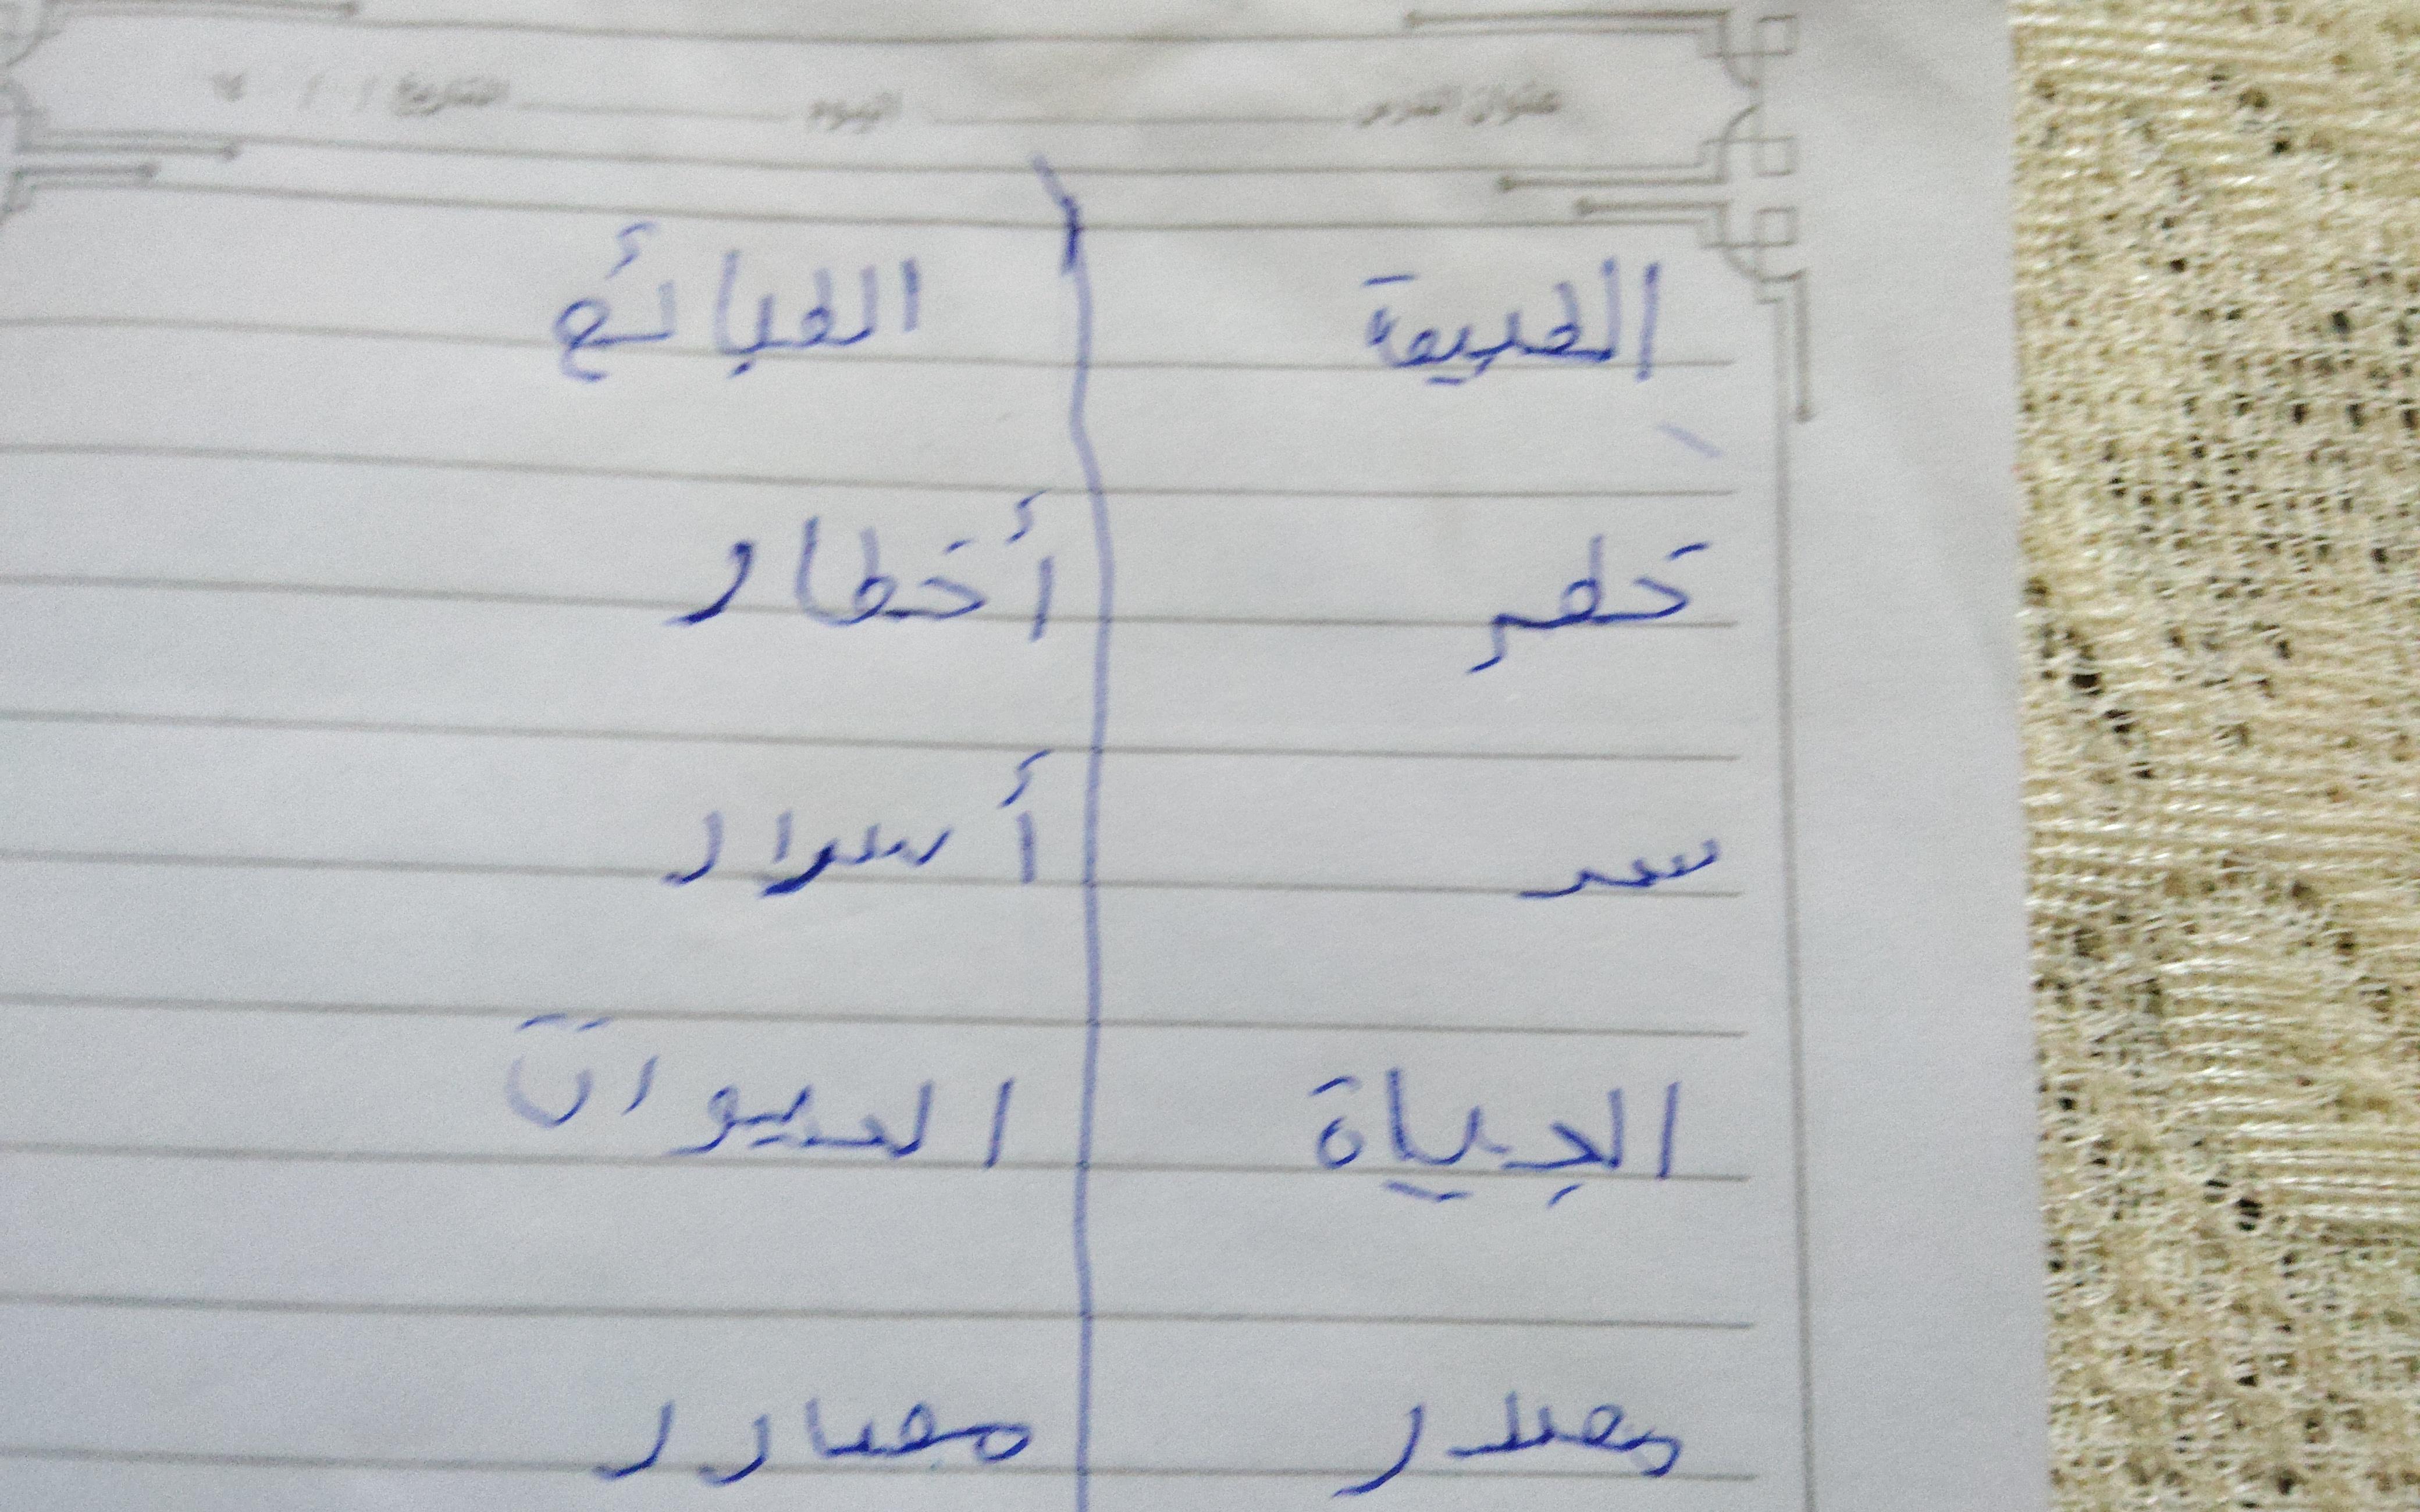 عنوان الدرس اليوم التاريخ / / ١٤
الطبيعة الطبائع
خطر أخطار
سر أسرار
الحياة الحيوات
مصدر مصادر